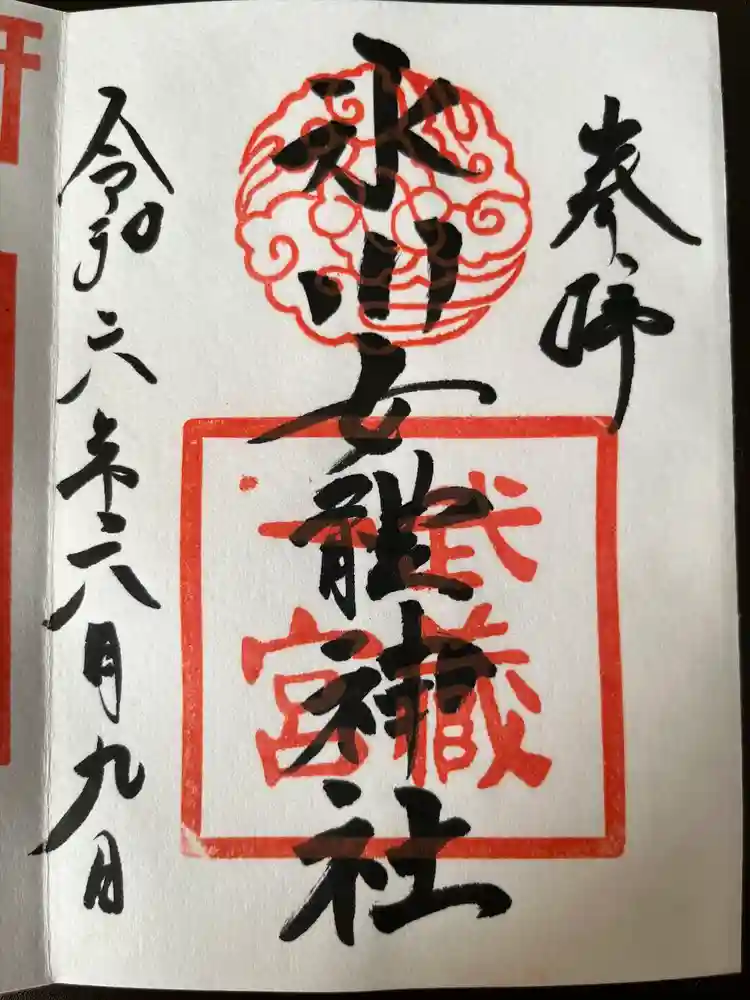 奉拝
氷川女體神社
武藏
一宮
令和六年六月九日